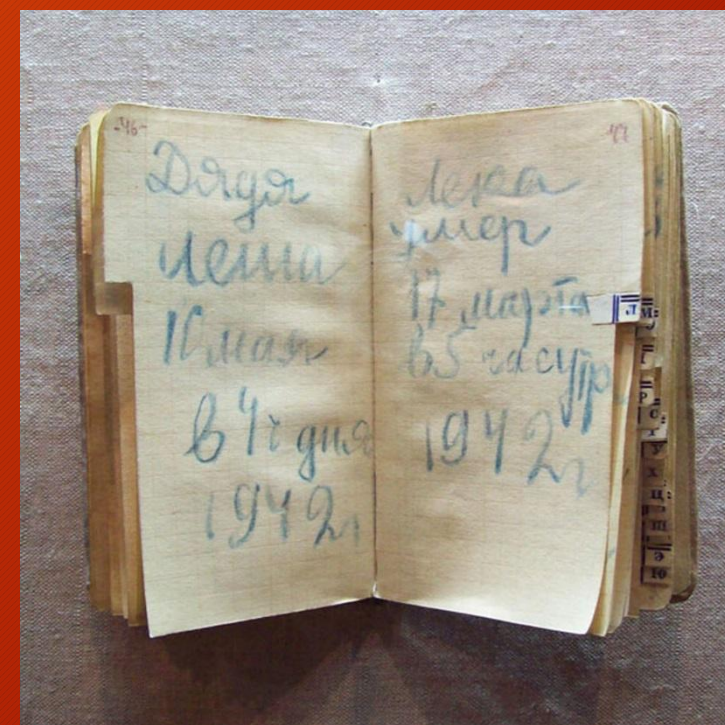 -46-
Дядя
Леша
10 мая
в 4 ч дня
1942 г
47
Лека
умер
17 марта
в 5 час утр.
1942 г
Л
М
Р
С
Т
У
Х
Ц
Ш
Э
Ю